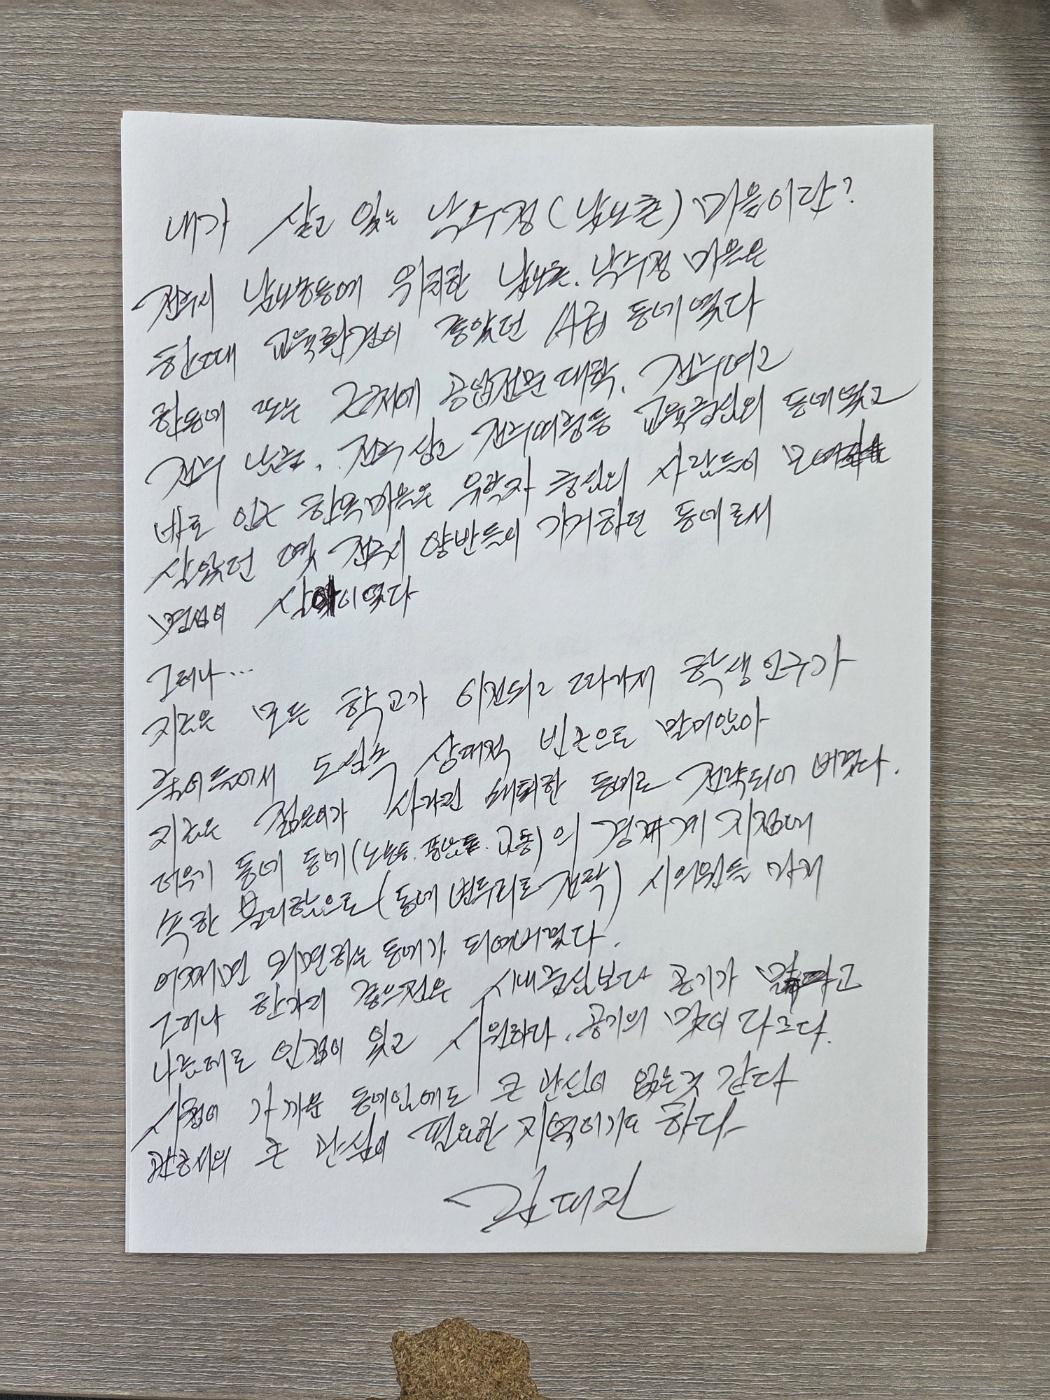 내가 살고 있는 낙수정(남노촌) 마을이란?
전주시 남노송동에 위치한 남노촌. 낙수정 마을은
한때 교육환경이 좋았던 사립 동네였다
한동네 또는 근처에 공업전문대학, 전주여고
전주 남중, 전주상고 전주여중등 교육중심의 동네였고
바로 인근 한옥마을은 유학자 중심의 사람들이
살았던 옛 전주시 양반들의 기거하던 동네로서
명성이 이었다
그러나...
지금은 모든 학교가 이전되고 따라서 학생인구가
줄어들어서 도심속 상대적 빈곤으로 말미암아
지금은 젊은이가 사라진 쇠퇴한 동네로 전락되어 버렸다.
더욱이 동네 동네(노송동. 풍남동. 교동)의 경계 지점에
속한 불리함으로(동네 변두리로 전락) 시의원들 마저
어쩌면 외면하는 동네가 되어버렸다.
그러나 한가지 좋은점은 시내중심보다 공기가 맑고
나름대로 인정이 있고 시원하다. 공기의 맛이 다르다.
시청이 가까운 동네임에도 큰 관심이 없는것 같다
관공서의 큰 관심이 필요한 지역이기도 하다
김대진